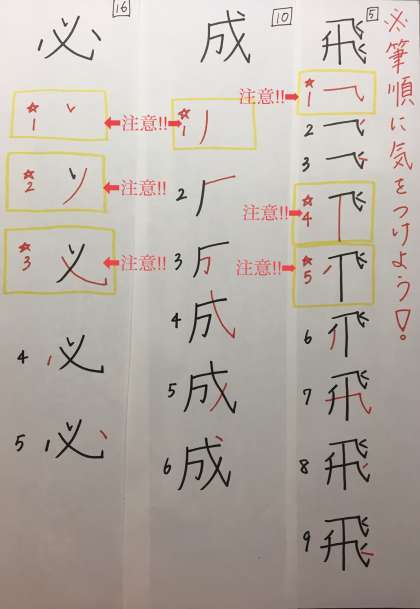 ※筆順に気をつけよう!。
5
飛
注意!!
☆1
2
3
注意!!
☆4
注意!!
☆5
6
7
飛
8
飛
9
飛
10
成
注意!!
☆1
2
3
4
成
5
成
6
成
16
必
☆1
注意!!
☆2
注意!!
☆3
注意!!
4
必
5
必